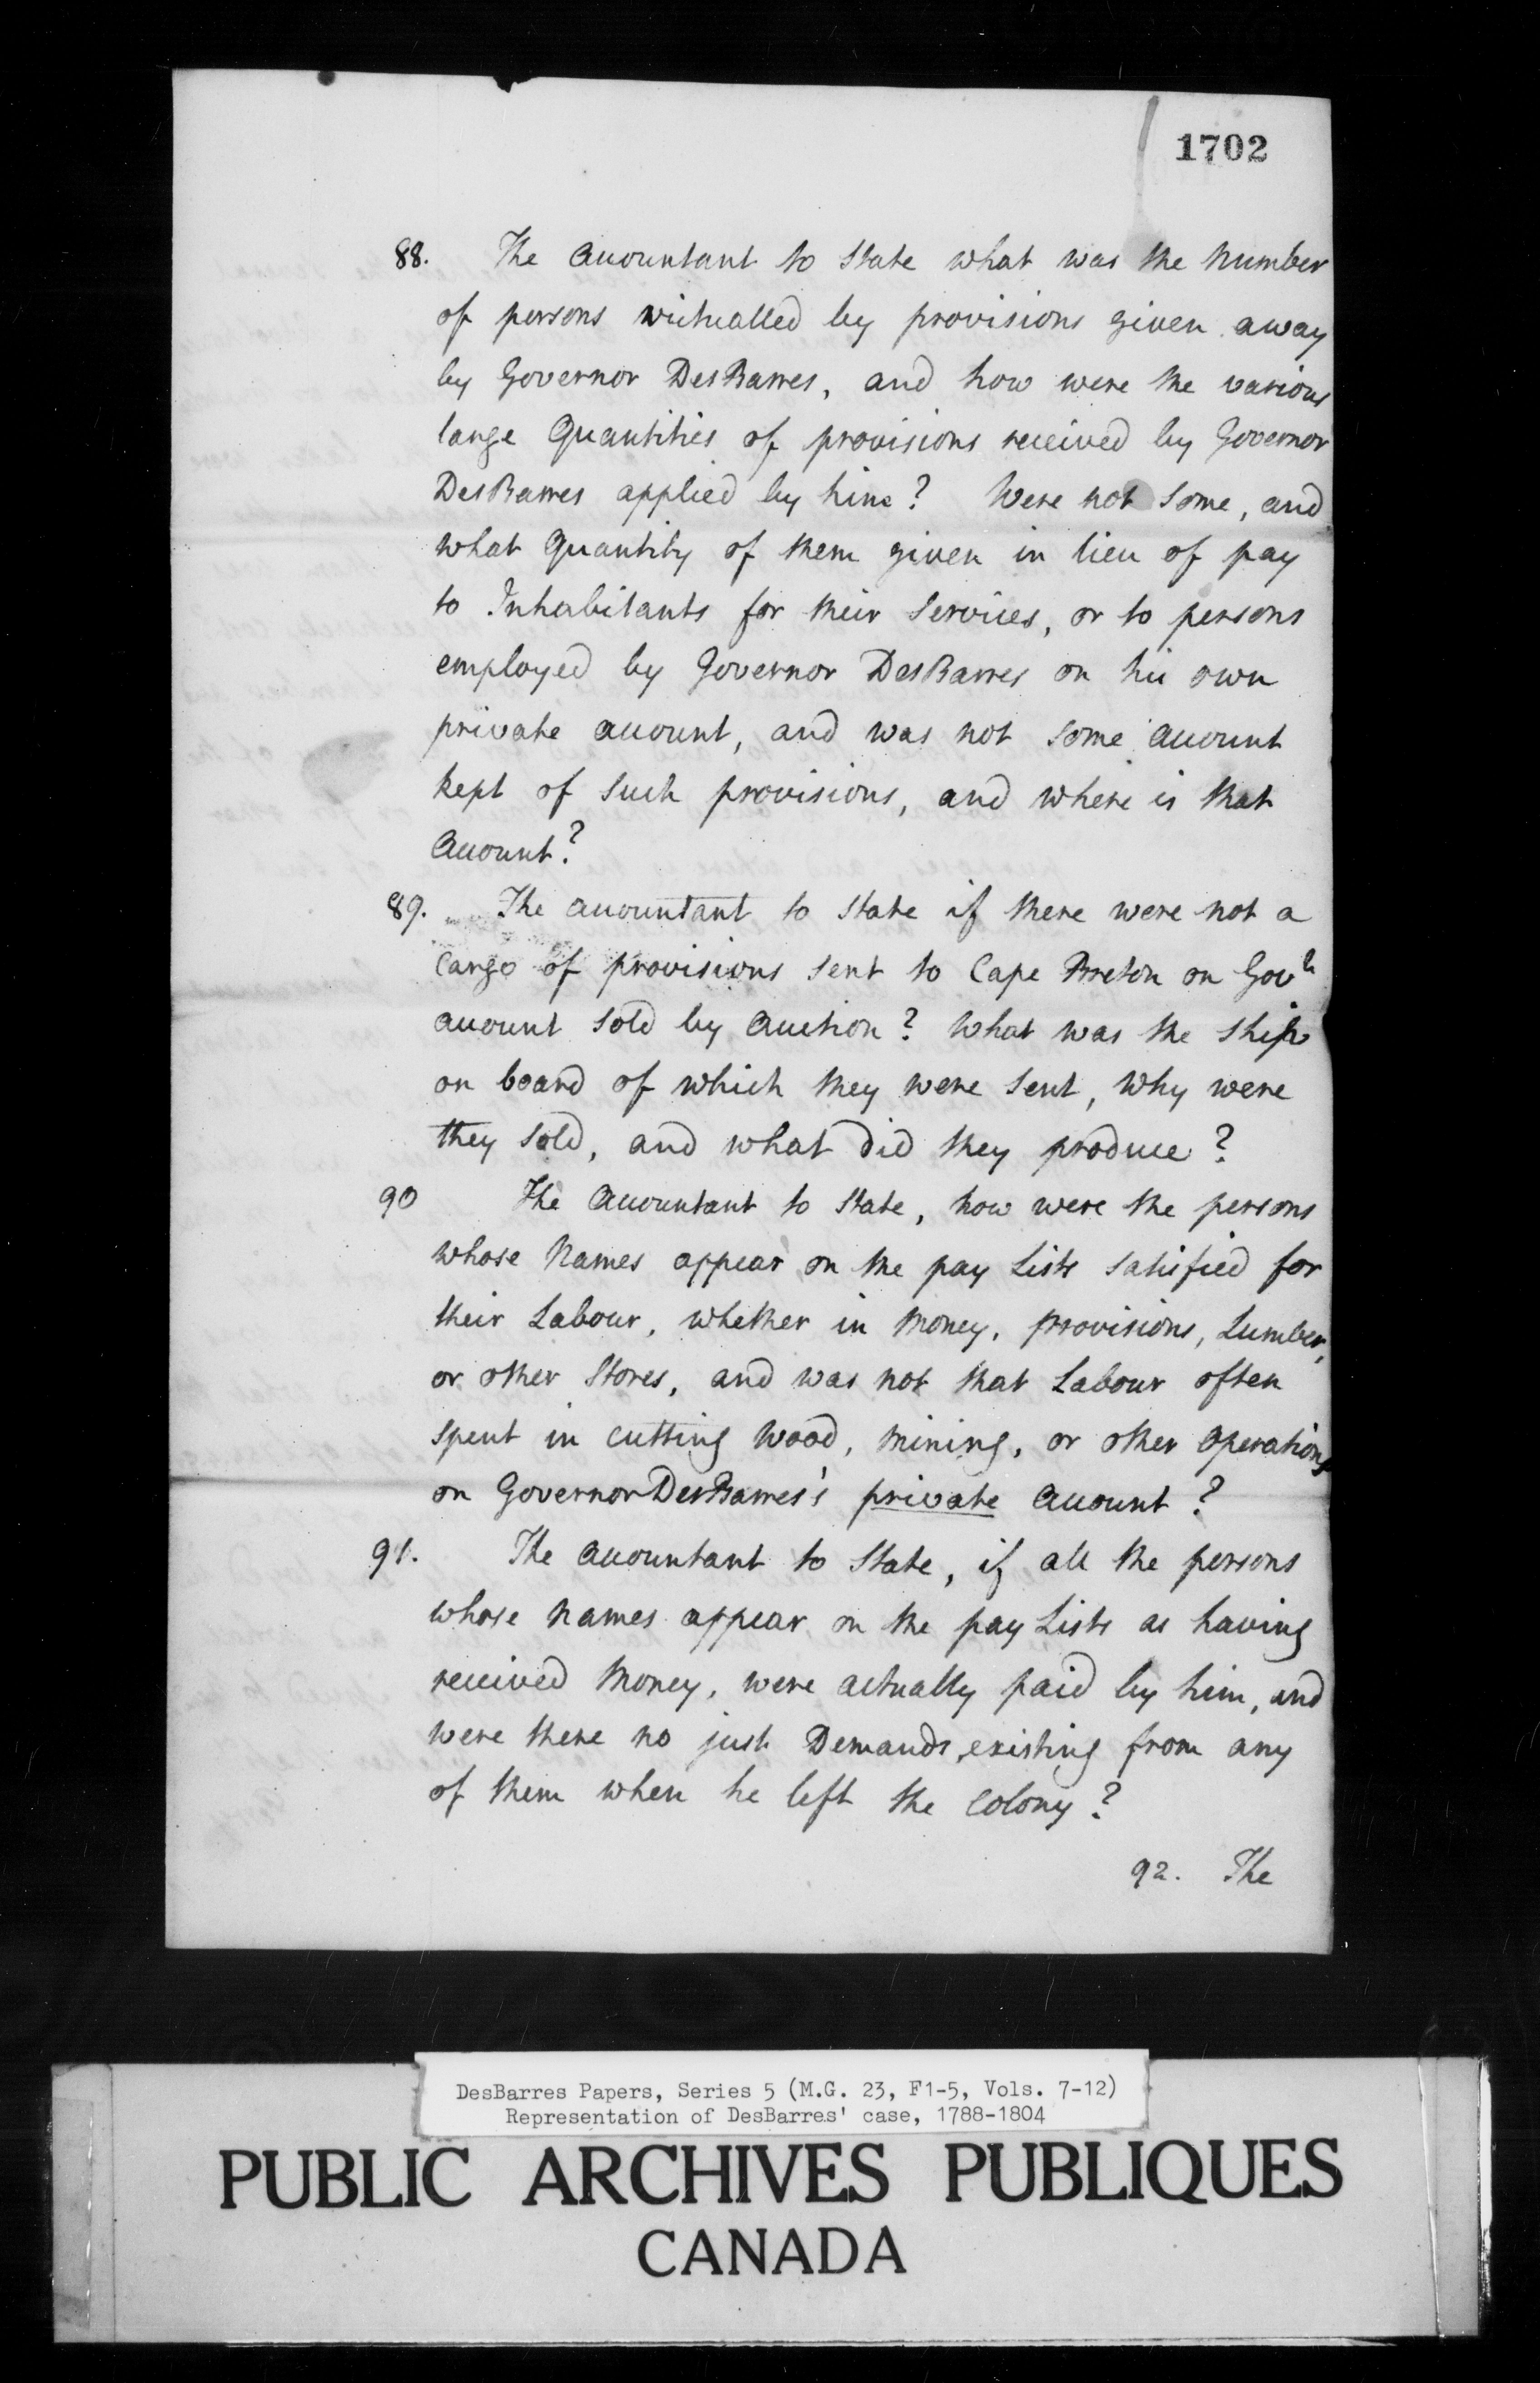 1702
88. The Accountant to State what was the Number
of persons victualled by provisions given away
by Governor DesBarres, and how were the various
large Quantities of provisions received by Governor
DesBarres applied by him? Were not Some, and
what Quantity of them given in lieu of pay
to Inhabitants for their Services, or to persons
employed by Governor DesBarres on his own
private account, and was not some account
kept of such provisions, and where is that
Account?
89. The accountant to State if there were not a
Cargo of provisions sent to Cape Breton on Govt
account Sold by Auction? What was the Ship
on board of which they were Sent, Why were
they Sold, and what did they produce?
90 The Accountant to State, how were the persons
whose Names appear on the pay Lists Satisfied for
their Labour, whether in Money, provisions, Lumber,
or other Stores, and was not that Labour often
spent in cutting Wood, Mining, or other Operations
on Governor DesBarres's private Account?
91. The Accountant to State, if all the persons
whose Names appear on the pay Lists as having
received Money, were actually paid by him, and
were there no just Demands existing from any
of them when he left the Colony?
92. The
DesBarres Papers, Series 5 (M.G. 23, F1-5, Vols. 7-12)
Representation of DesBarres' case, 1788-1804
PUBLIC ARCHIVES PUBLIQUES
CANADA